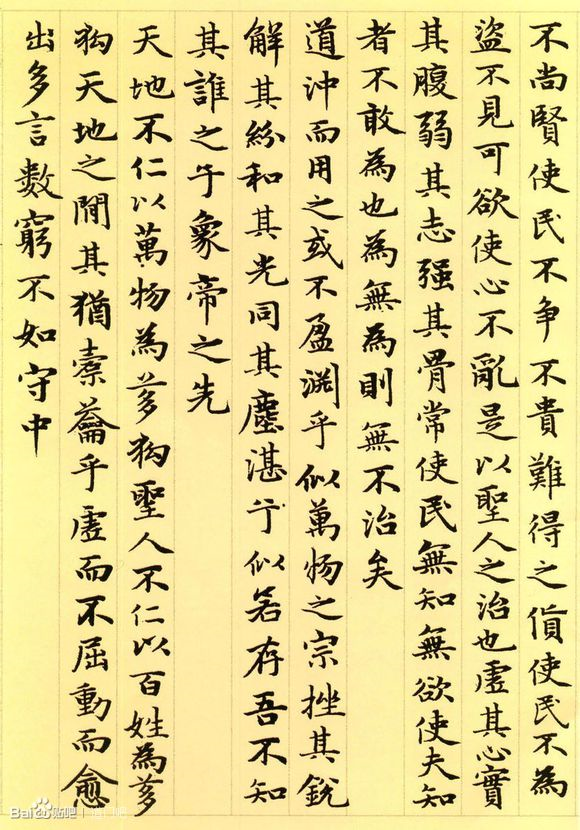 不尚賢使民不争不貴難得之貨使民不為
盜不見可欲使心不亂是以聖人之治也虛其心實
其腹弱其志强其骨常使民無知無欲使夫知
者不敢為也為無為則無不治矣
道沖而用之或不盈淵乎似萬物之宗挫其銳
解其紛和其光同其塵湛兮似若存吾不知
其誰之子象帝之先
天地不仁以萬物為芻狗聖人不仁以百姓為芻
狗天地之間其猶橐籥乎虛而不屈動而愈
出多言數窮不如守中
Bai 贴吧